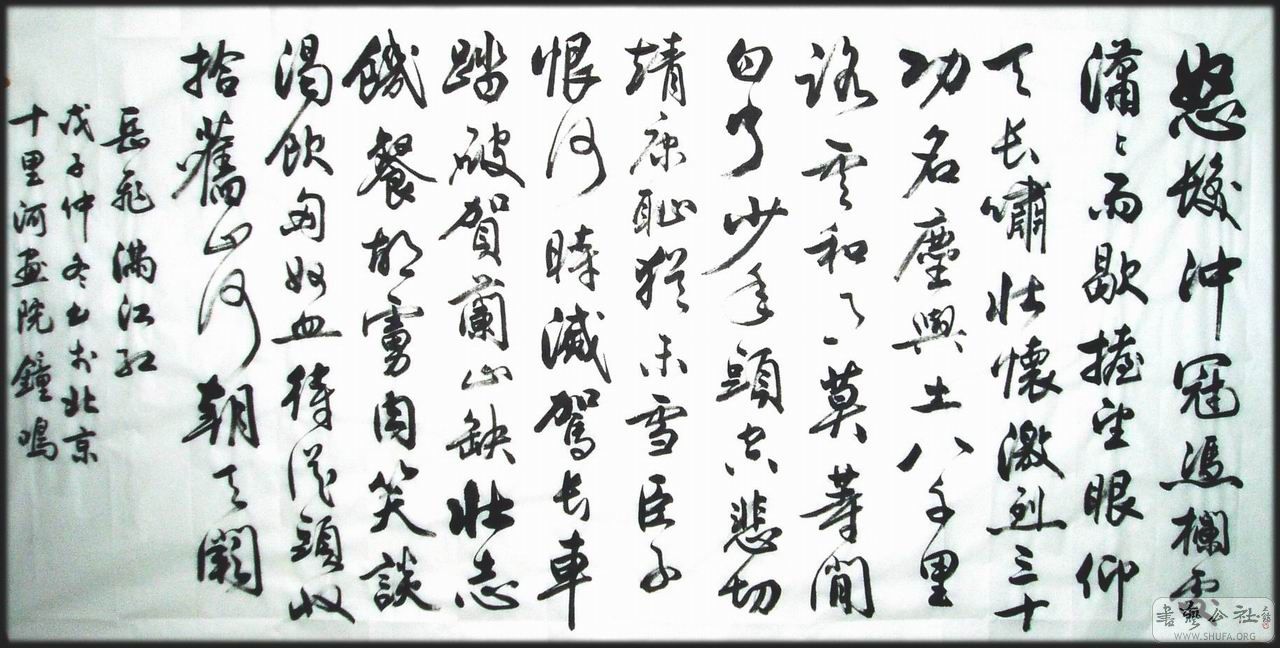 怒髮沖冠馮欄處
瀟〻雨歇擡望眼仰
天长嘯壯懷激烈三十
功名塵與土八千里
路雲和月莫等閒
白了少年頭空悲切
靖康恥猶未雪臣子
恨何時滅駕长車
踏破賀蘭山缺壯志
饑餐胡虜肉笑談
渴飲匈奴血待從頭收
拾舊山河朝天闕
岳飛滿江红
戊子仲冬书於北京
十里河画院鐘鳴
書藝公社
WWW.SHUFA.ORG